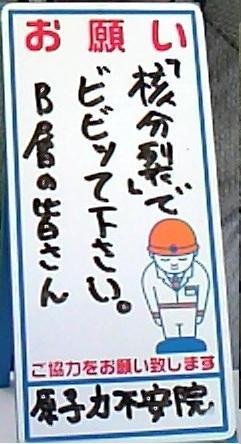 お願い
「核分裂」で
ビビッて下さい。
B層の皆さん
ご協力をお願い致します
原子力不安院